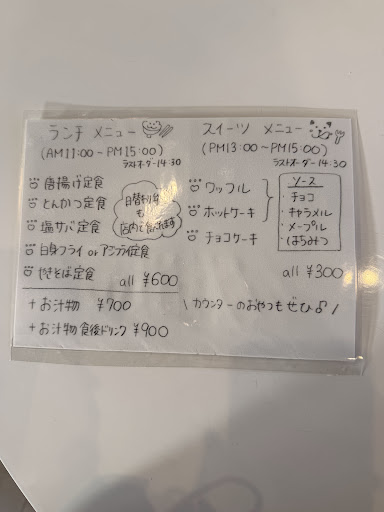 ランチ メニュー
(AM11:00～PM15:00)
ラストオーダー 14:30
唐揚げ定食
とんかつ定食
塩サバ定食
白身フライ or アジフライ定食
やきそば定食
all ¥600
日替わり弁当
も
店内で食べれます
+お汁物 ¥700
+お汁物 食後ドリンク ¥900
スイーツ メニュー
(PM13:00～PM15:00)
ラストオーダー 14:30
ワッフル
ホットケーキ
チョコケーキ
ソース
・チョコ
・キャラメル
・メープル
・はちみつ
all ¥300
\ カウンターのおやつもぜひ♪ /